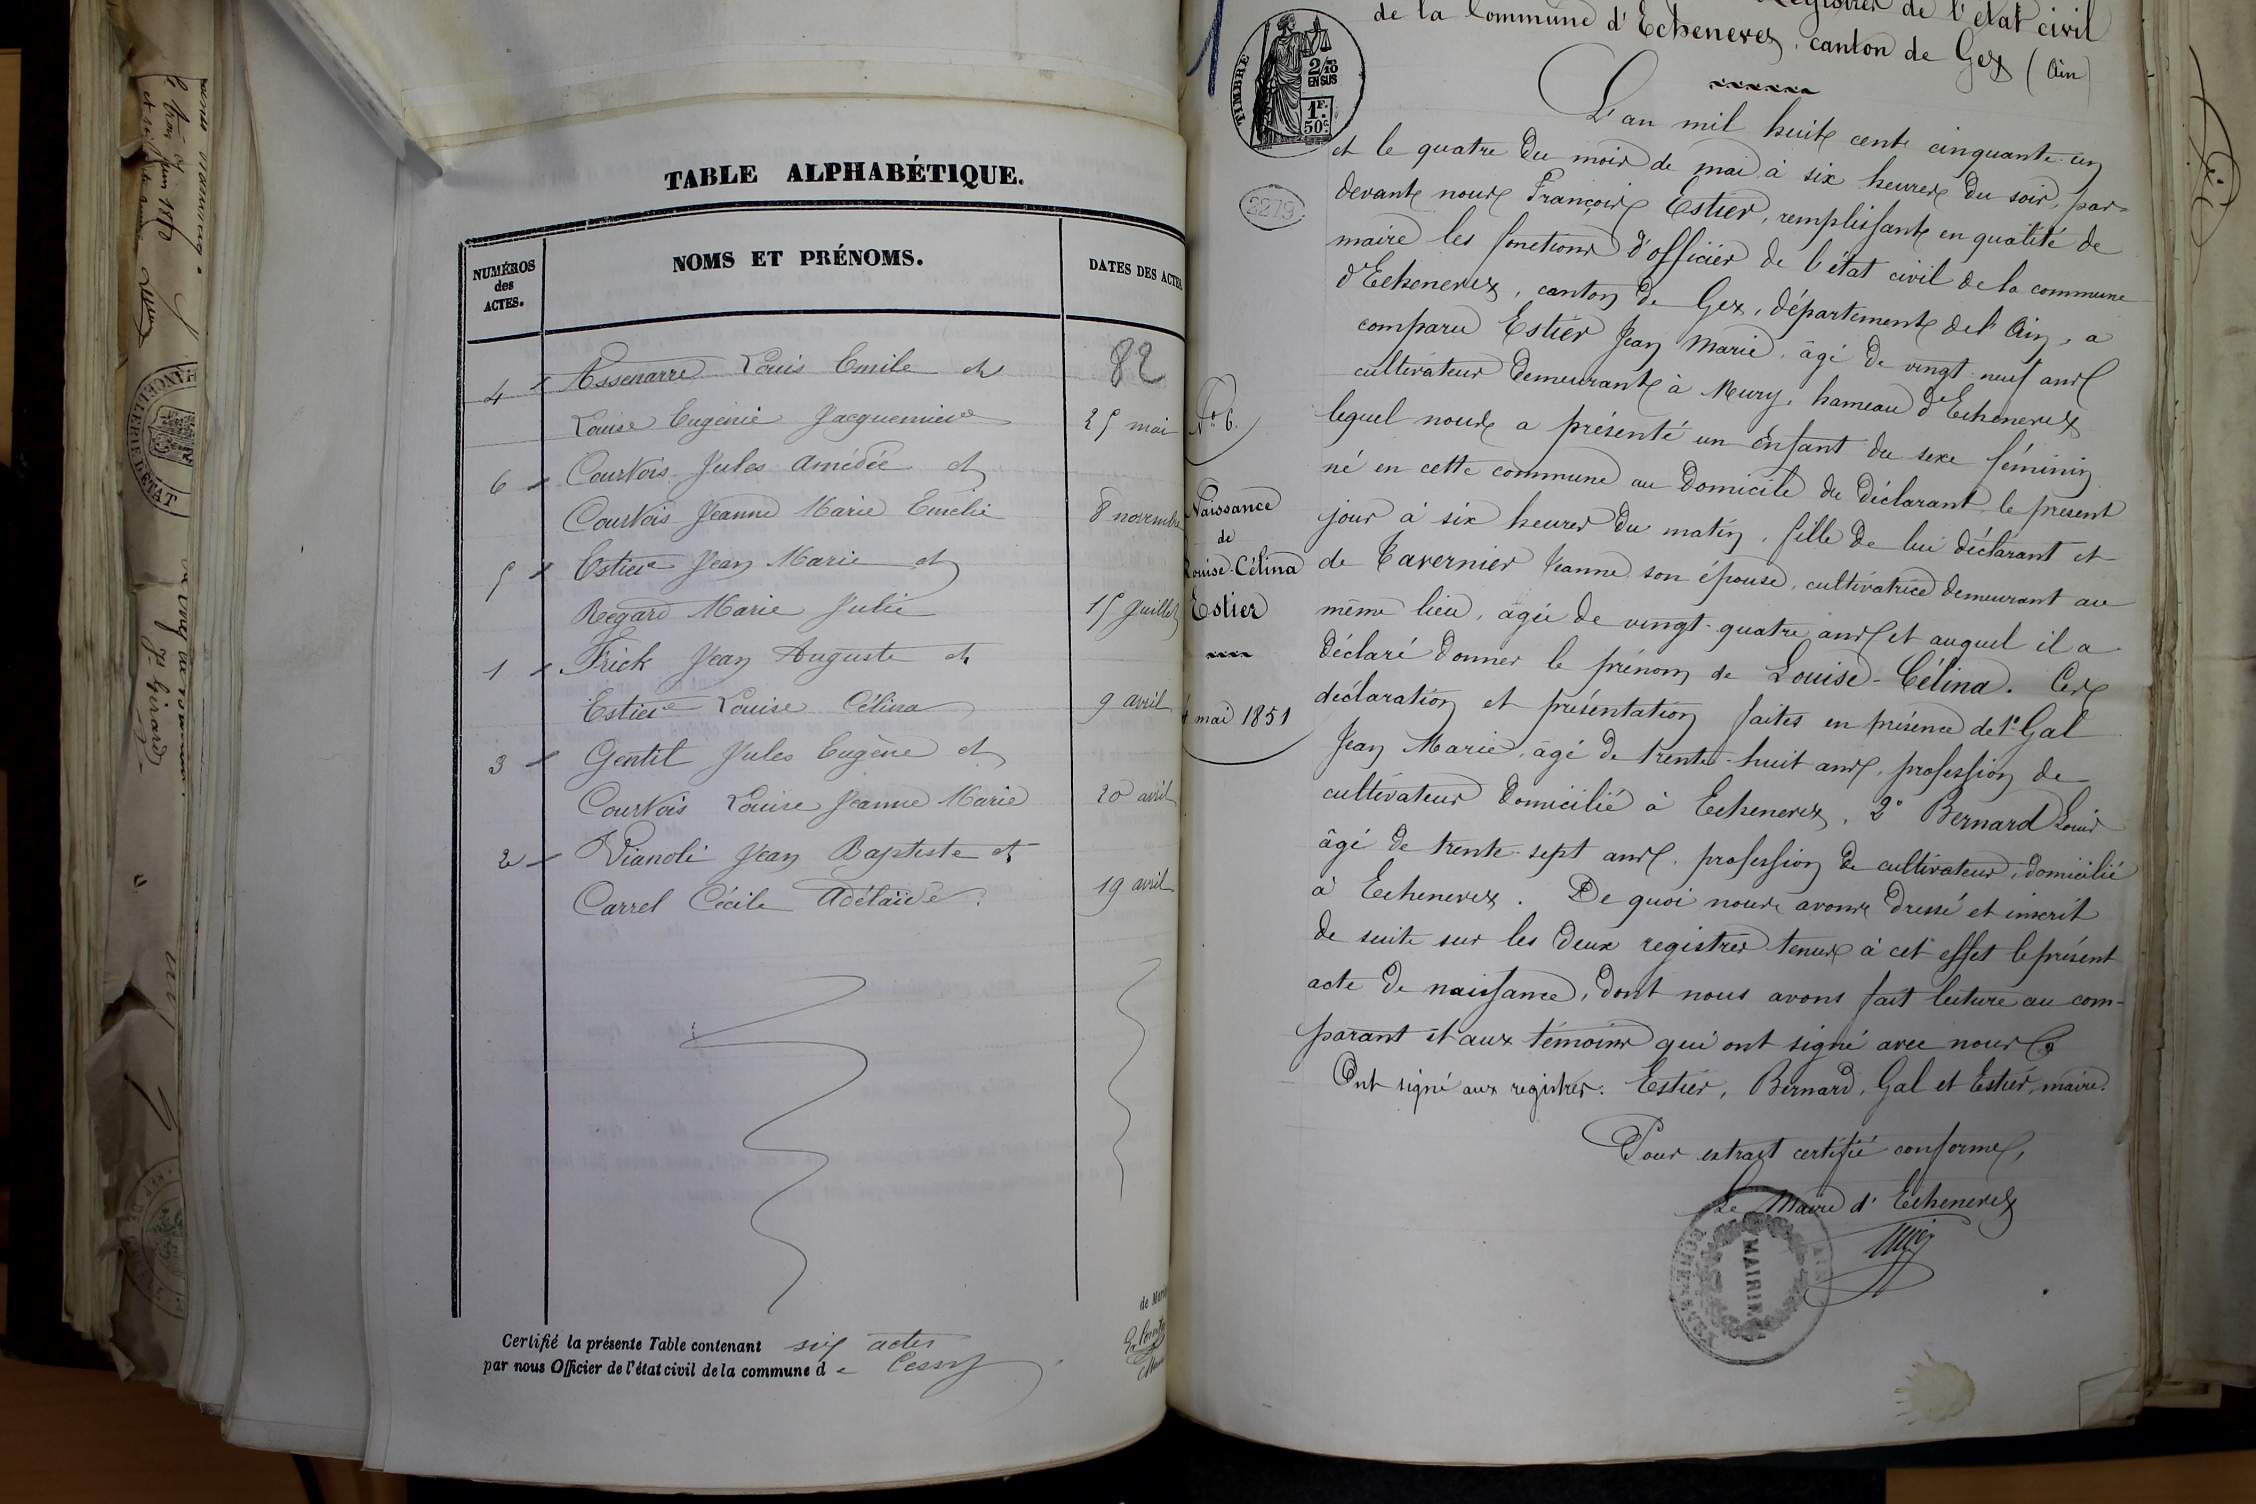 TABLE ALPHABÉTIQUE.
NUMÉROS des ACTES.
NOMS ET PRÉNOMS.
DATES DES ACTES
82
4 Assenarre Louis Emile et
Louise Eugénie Jacquemier 25 mai
6 Courtois Jules Amédée et
Courtois Jeanne Marie Emélie 8 novembre
5 Estier Jean Marie et
Regard Marie Julie 15 Juillet
1 Frick Jean Auguste et
Estier Louise Célina 9 avril
3 Gentil Jules Eugène et
Courtois Louise Jeanne Marie 20 avril
2 Vianoli Jean Baptiste et
Carrel Cécile Adélaïde. 19 avril
Certifié la présente Table contenant six actes
par nous Officier de l'état civil de la commune de Cessy
TIMBRE
2/10
EN SUS
1F.
50c.
2279
Registres de l'état civil
de la Commune d'Echenevex, canton de Gex (Ain)
L'an mil huit cent cinquante-un
et le quatre du mois de mai à six heures du soir, par-
devant nous François Estier, remplissant en qualité de
maire les fonctions d'officier de l'état civil de la commune
d'Echenevex, canton de Gex, département de l'Ain, a
comparu Estier Jean Marie, âgé de vingt-neuf ans
cultivateur demeurant à Mury, hameau d'Echenevex
lequel nous a présenté un enfant du sexe féminin
né en cette commune au domicile du déclarant, le présent
jour à six heures du matin, fille de lui déclarant et
de Tavernier Jeanne son épouse, cultivatrice demeurant au
même lieu, agée de vingt-quatre ans et auquel il a
déclaré donner le prénom de Louise-Célina. Ces
déclaration et présentation faites en présence de 1° Gal
Jean Marie, âgé de trente-huit ans, profession de
cultivateur domicilié à Echenevex, 2° Bernard Louis
âgé de trente-sept ans, profession de cultivateur, domicilié
à Echenevex. De quoi nous avons dressé et inscrit
de suite sur les deux registres tenus à cet effet le présent
acte de naissance, dont nous avons fait lecture au com-
parant et aux témoins qui ont signé avec nous.
Ont signé aux registres: Estier, Bernard, Gal et Estier, maire.
Pour extrait certifié conforme,
Le Maire d'Echenevex
MAIRIE
N° 6.
Naissance
de
Louise-Célina
Estier
4 mai 1851